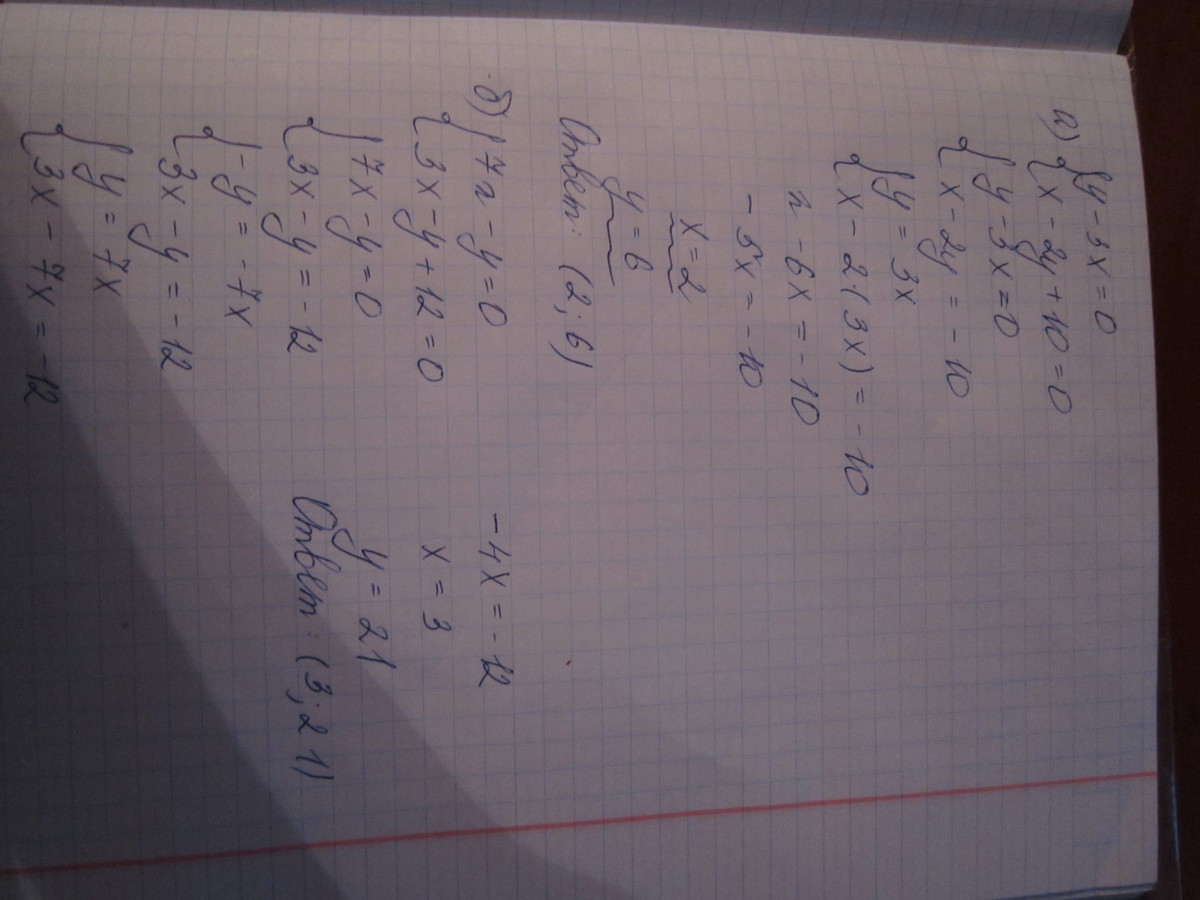 а) { y - 3x = 0
x - 2y + 10 = 0
{ y - 3x = 0
x - 2y = - 10
{ y = 3x
x - 2·(3x) = - 10
x - 6x = - 10
- 5x = - 10
x = 2
y = 6
Ответ: (2; 6)
б) { 7x - y = 0
3x - y + 12 = 0
{ 7x - y = 0
3x - y = - 12
{ - y = - 7x
3x - y = - 12
{ y = 7x
3x - 7x = - 12
- 4x = - 12
x = 3
y = 21
Ответ: (3; 21)